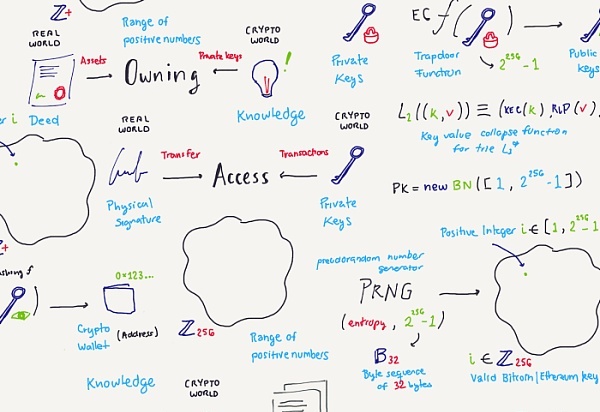 Z+
Range of
positive numbers
REAL
WORLD
Assets
Owning
Private keys
CRYPTO
WORLD
Deed
Knowledge
!
Private
Keys
EC f( )
Trapdoor
Function
2^256-1
Public
Keys
er i
REAL
WORLD
Transfer
Access
Transactions
CRYPTO
WORLD
Physical
Signature
Private
Keys
L2((k,v)) ≡ (KEC(k), RLP(v),
Key value collapse function
for trie L3*
PK = new BN([1, 2^256-1])
Positive Integer i ∈ [1, 2^256-1
Z+
ashing f
)
0x123...
Crypto
Wallet
(Address)
Z256
Range of
positive numbers
pseudorandom number
generator
PRNG
(entropy, 2^256-1)
B32
Byte sequence
of 32 bytes
i ∈ Z256
Valid Bitcoin|Ethereum key
Knowledge
CRYPTO
WORLD